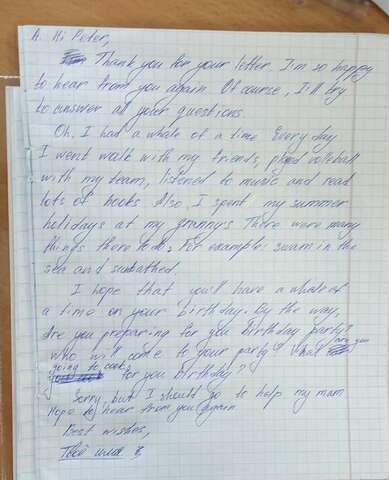 A. Hi Peter,
Thank you for your letter. I'm so happy
to hear from you again. Of course, I'll try
to answer all your questions.
Oh, I had a whale of a time. Every day
I went walk with my friends, played volleyball
with my team, listened to music and read
lots of books. Also, I spent my summer
holidays at my granny's. There were many
things there to do. For example: swam in the
sea and sunbathed.
I hope that you'll have a whale of
a time on your birthday. By the way,
are you preparing for you birthday party?
who will come to your party? What are you
going to cook
for you birthday?
Sorry, but I should go to help my mam
Hope to hear from you again
Best wishes,